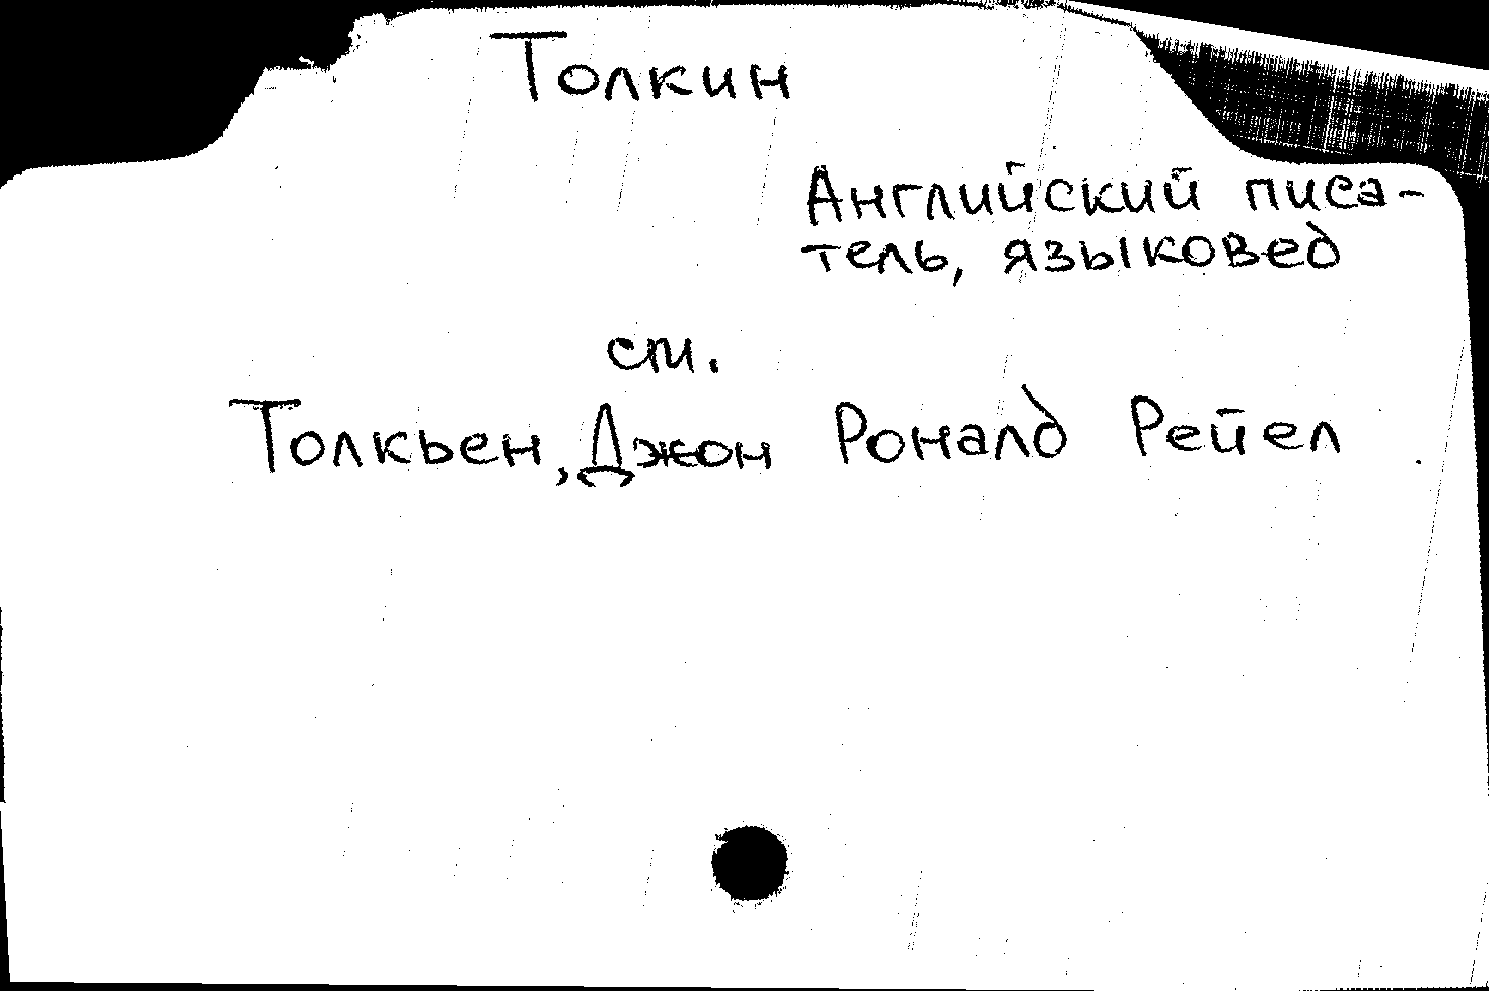 Толкин
Английский писа-
тель, языковед
см.
Толкьен, Джон Роналд Рейел